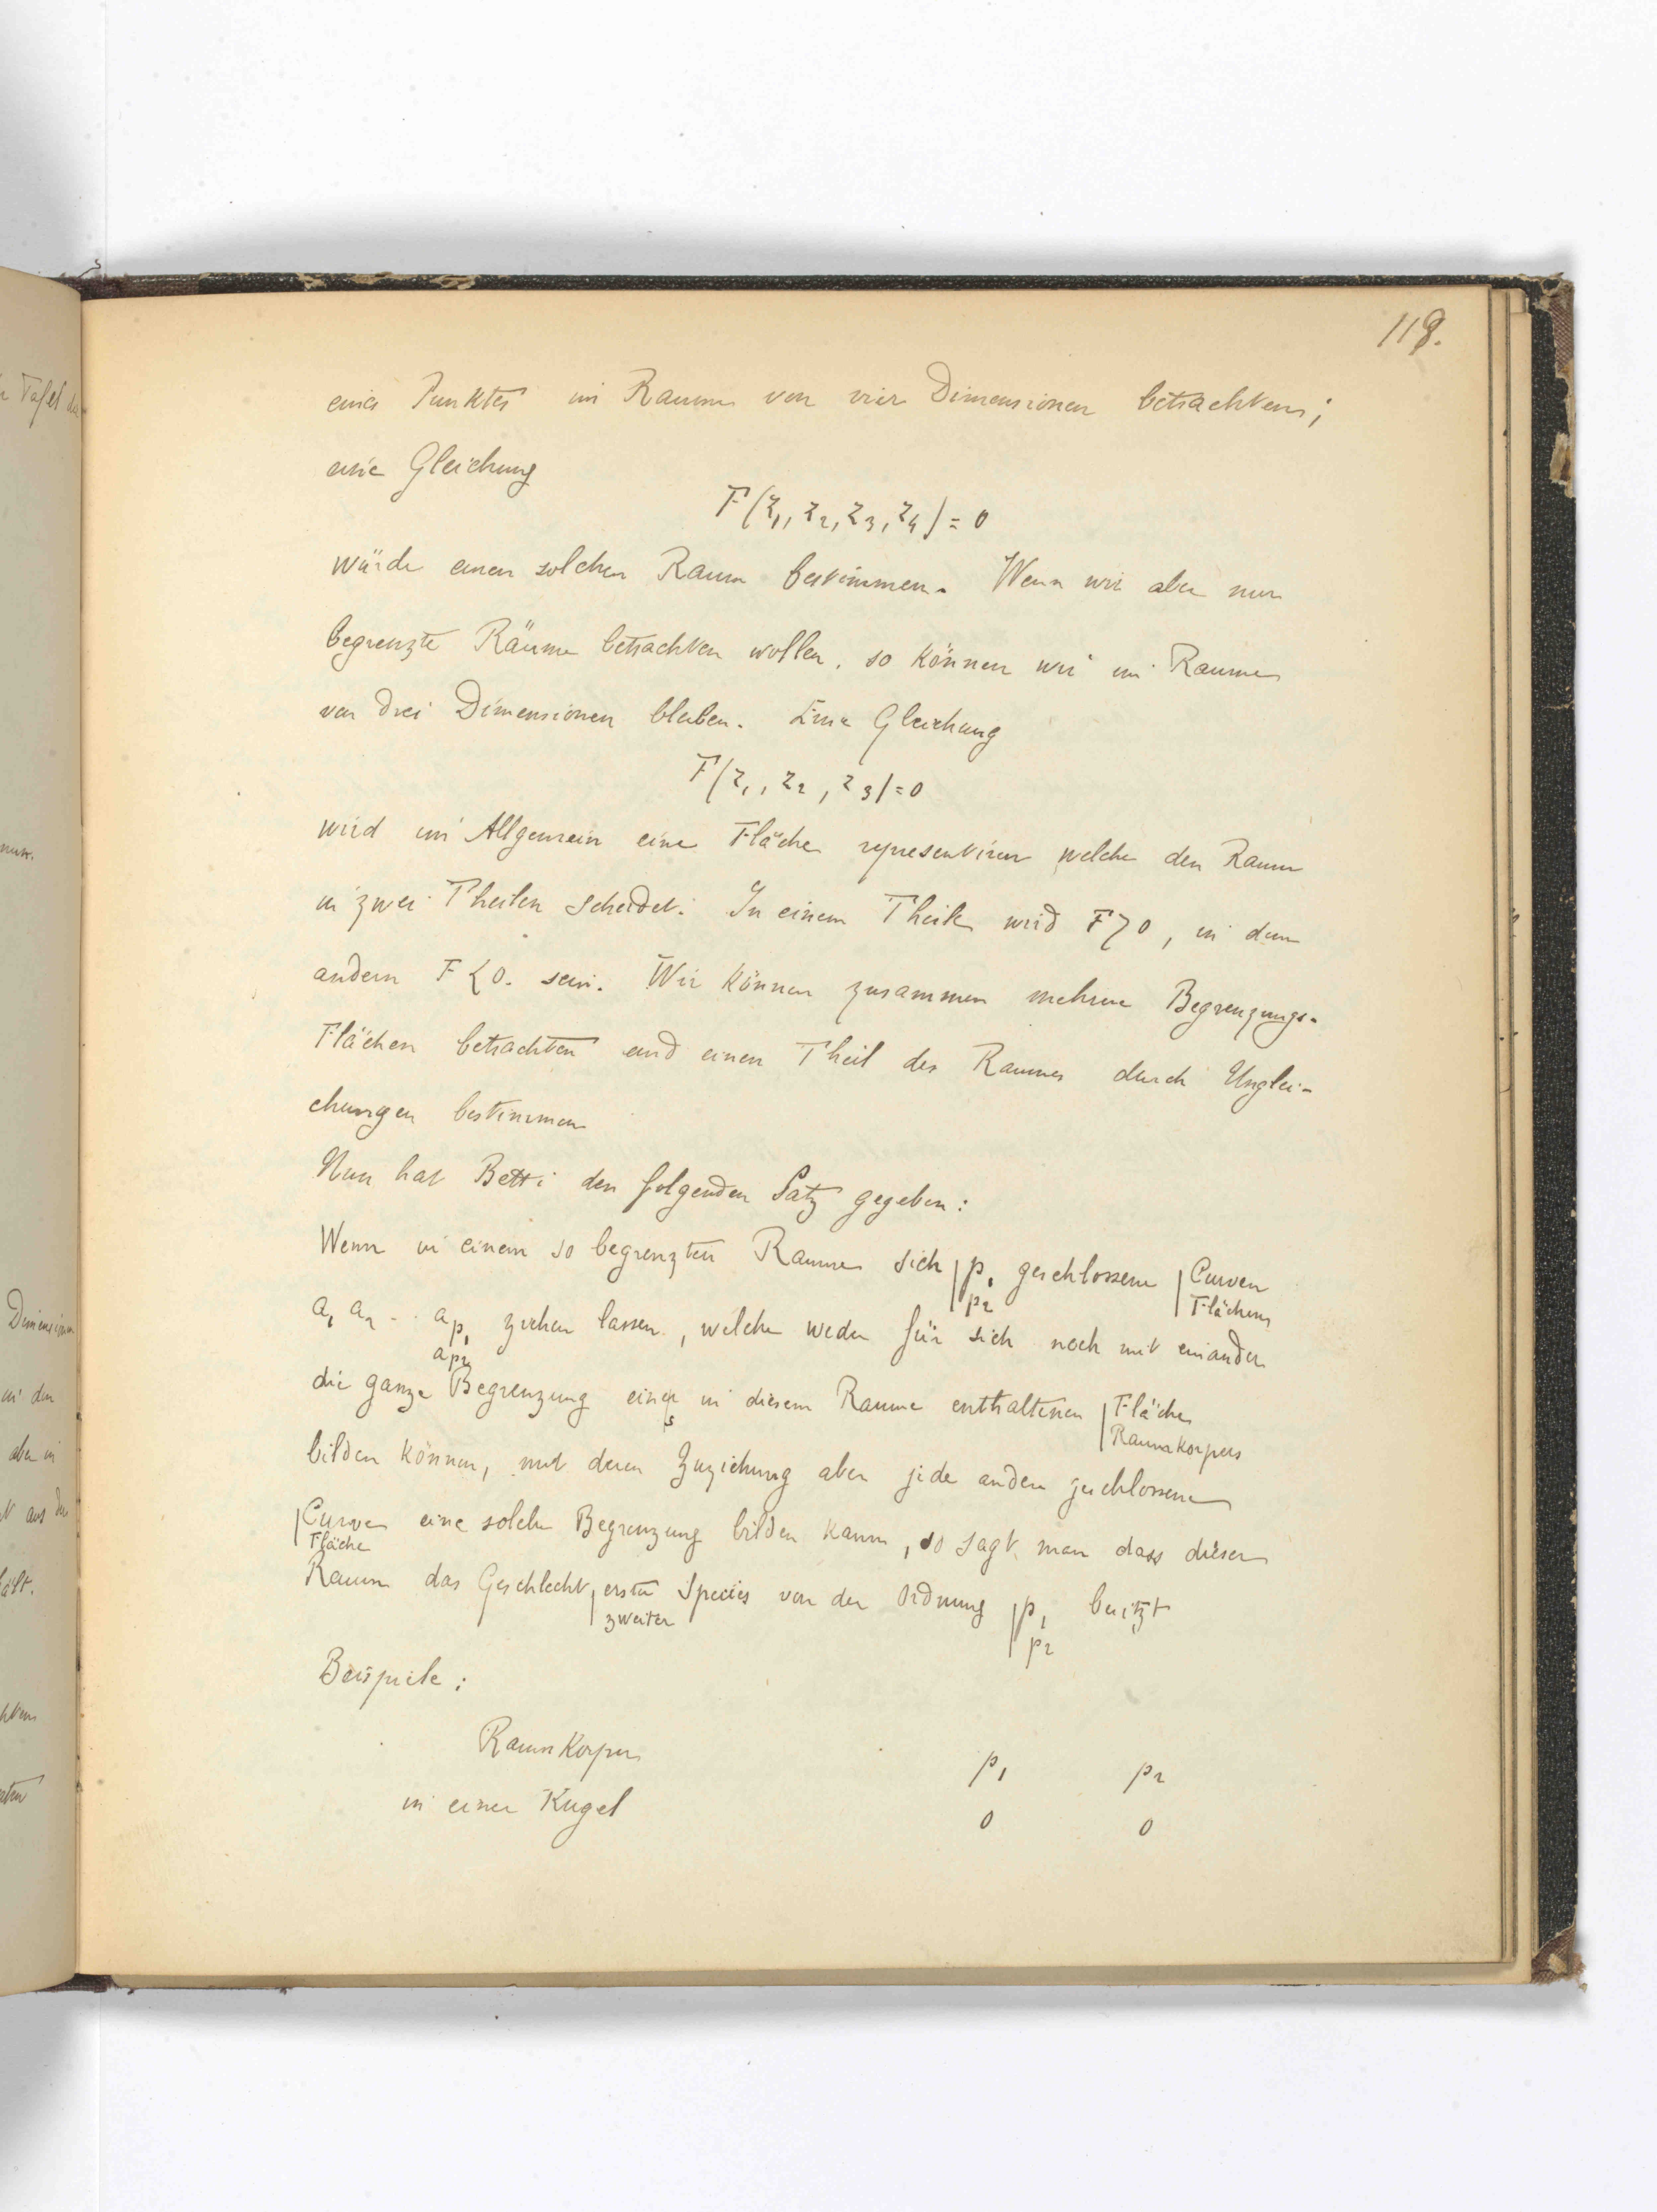 118.
eines Punktes im Raume von vier Dimensionen betrachten;
eine Gleichung
F(z₁, z₂, z₃, z₄) = 0
würde einen solchen Raum bestimmen. Wenn wir aber nur
begrenzte Räume betrachten wollen, so können wir im Raume
von drei Dimensionen bleiben. Eine Gleichung
F(z₁, z₂, z₃) = 0
wird im Allgemein eine Fläche representiren welche den Raum
in zwei Theilen scheidet. In einem Theile wird F>0, in dem
andern F<0. sein. Wir können zusammen mehrere Begrenzungs-
Flächen betrachten und einen Theil des Raumes durch Unglei-
chungen bestimmen
Nun hat Betti den folgenden Satz gegeben:
Wenn in einem so begrenzten Raume sich | p₁ geschlossene | Curven
p₂ Flächen
a₁ a₂ .. a_p₁ ziehen lassen, welche weder für sich noch mit einander
a_p₂
die ganze Begrenzung einer in diesem Raume enthaltenen | Fläche
s Raumkorpers
bilden können, mit deren Zuziehung aber jede andere geschlossene
| Curve eine solche Begrenzung bilden kann, so sagt man dass dieser
Fläche
Raum das Geschlecht | erster Species von der Ordnung | p₁ besitzt
zweiter p₂
Beispiele:
Raumkorper p₁ p₂
in einer Kugel 0 0
Tafel
Dimensionen
in den
aber in
aus